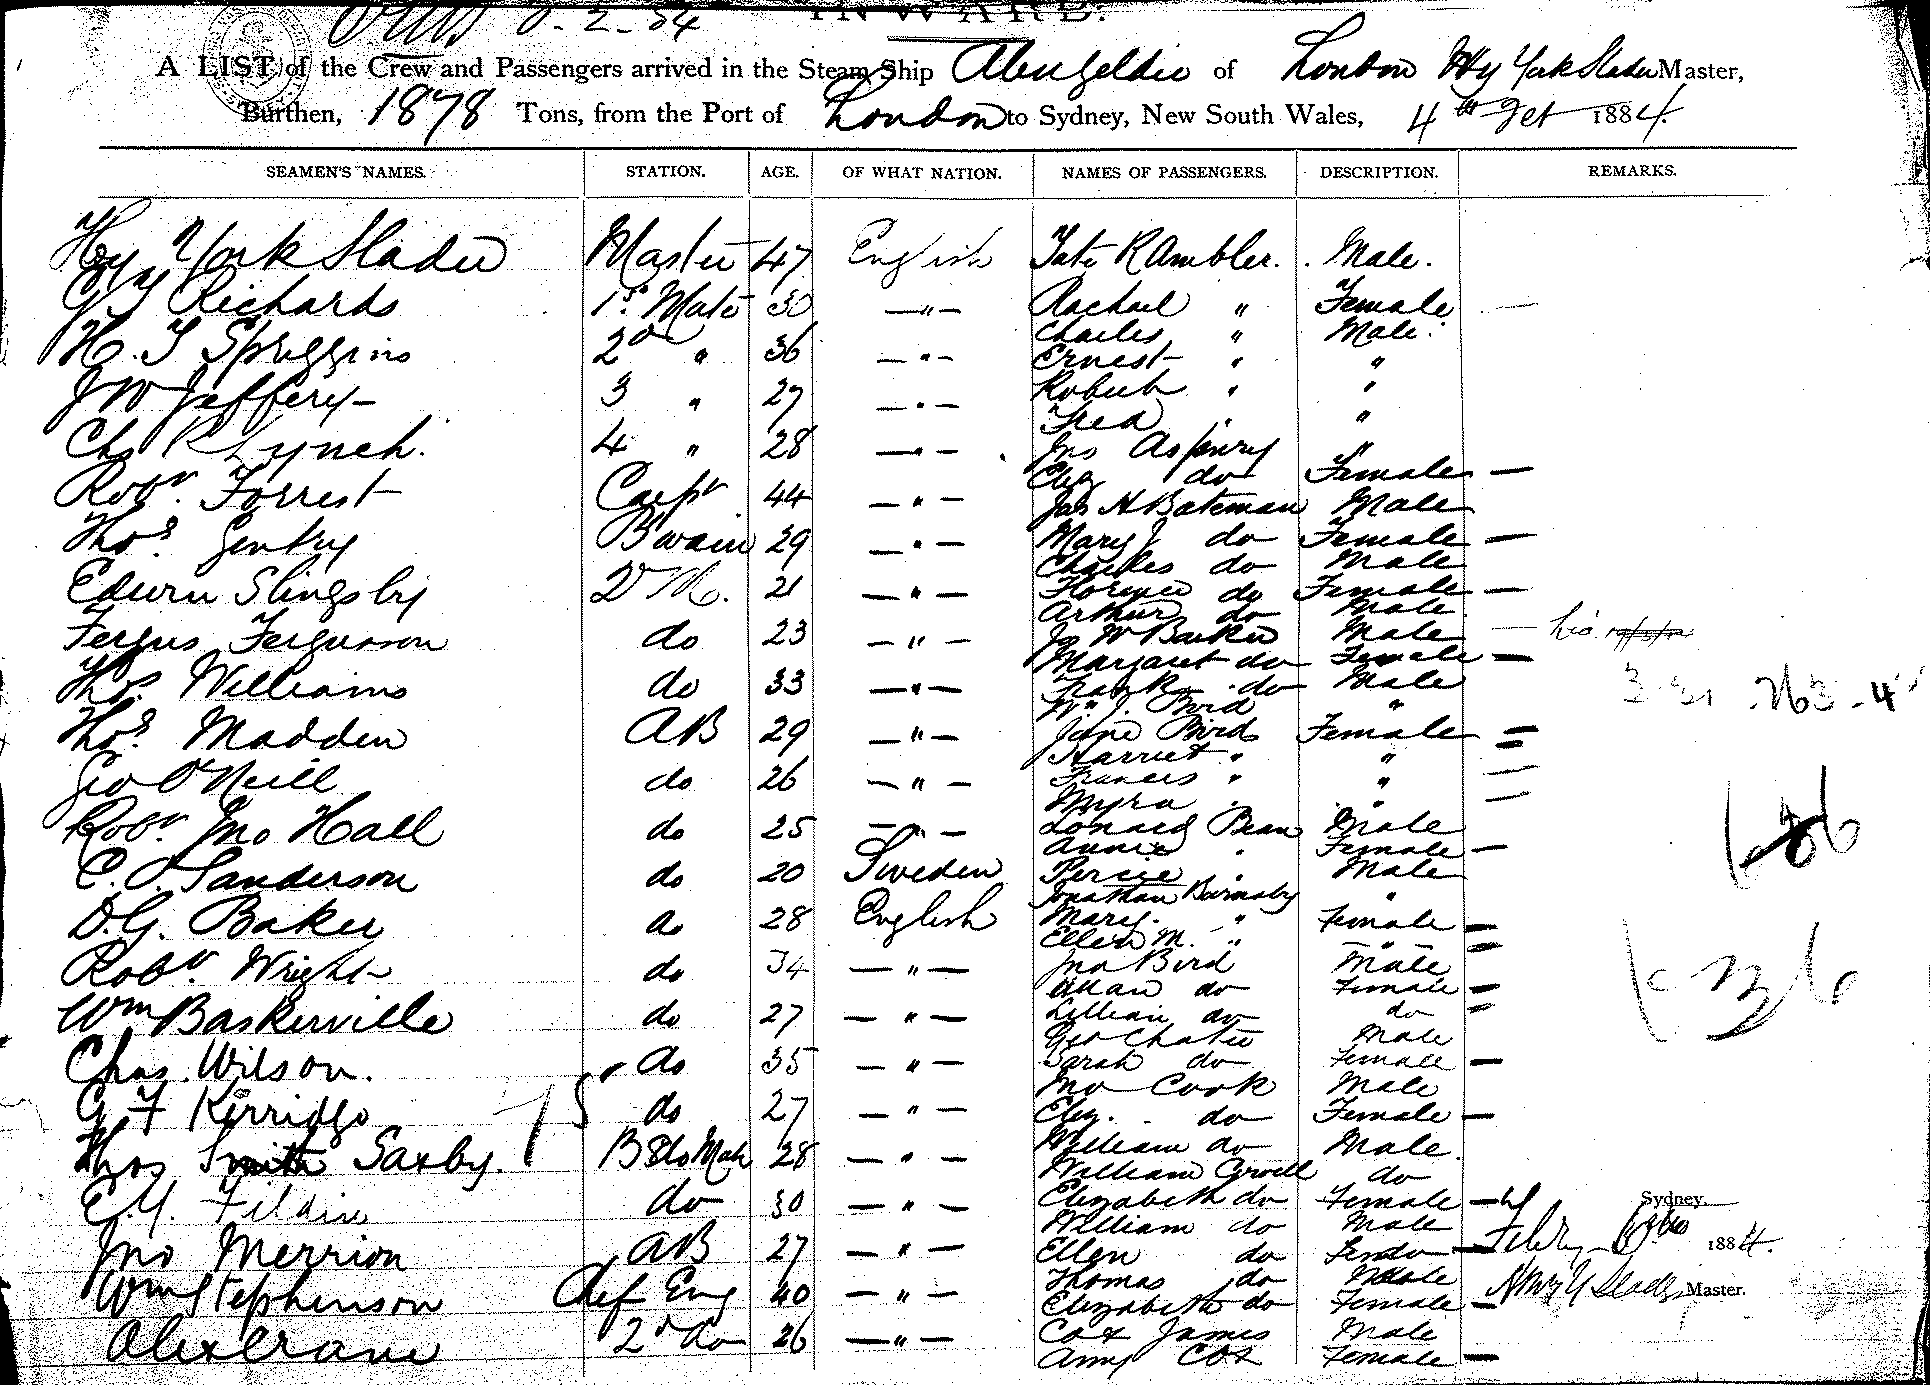 INWARD.
A LIST of the Crew and Passengers arrived in the Steam Ship Abergeldie of London Hy York Slader Master,
Burthen, 1878 Tons, from the Port of London to Sydney, New South Wales, 4th Feb 1884.
SEAMEN'S NAMES. STATION. AGE. OF WHAT NATION. NAMES OF PASSENGERS. DESCRIPTION. REMARKS.
Hy York Slader Master 47 English
Richards 1st Mate 30 — " —
H. J Spriggins 2d " 36 — " —
J W Jeffery 3 " 27 — " —
Chs R Lynch. 4 " 28 — " —
Robt. Forrest Carpr 44 — " —
Thos. Gentry B'wain 29 — " —
Edwin Slingsby 2r M. 21 — " —
Fergus Ferguson do 23 — " —
Thos. Williams do 33 — " —
Thos. Madden AB 29 — " —
Geo O'Neill do 26 — " —
Robt. Jno Hall do 25 — " —
C. Sanderson do 20 Sweden
D.G. Baker do 28 English
Robt. Wright do 34 — " —
Wm Baskerville do 27 — " —
Chas. Wilson. do 35 — " —
G F Kerridge do 27 — " —
Thos Smith Saxby. 28 — " —
do 30 — " —
Jno Merrion AB 27 — " —
Wm Stephenson Chef Eng 40 — " —
Alex Crane 2d do 26 — " —
Tate R Ambler. Male.
Rachael " Female —
Charles " Male.
Ernest " "
Robert " "
Fred " "
Jno Aspinry "
Eliz do Female —
Jas H Bateman Male
Mary J do Female —
Charles do Male
Florence do Female —
Arthur do Male
W Barker Male —
Margaret do Female —
Frank do Male
Wm J. Bird "
Jane Bird Female —
Harriet " " —
Frances " " —
Myra " " —
Lonard Bean Male
Annie " Female —
Percie " Male
Jonathan Barnaby "
Mary. " Female —
Ellen M. " — " — —
Jno Bird Male
Allan do Female —
Lillian do do —
Geo Chater Male
Sarah do Female —
Jno Cook Male
Eliz. do Female —
William do Male.
William do
Elizabeth do Female —
William do Male
Ellen do —
Thomas do Male
Elizabeth do Female —
Cox James Male
Amy Cox Female —
Sydney,
1884.
Master.